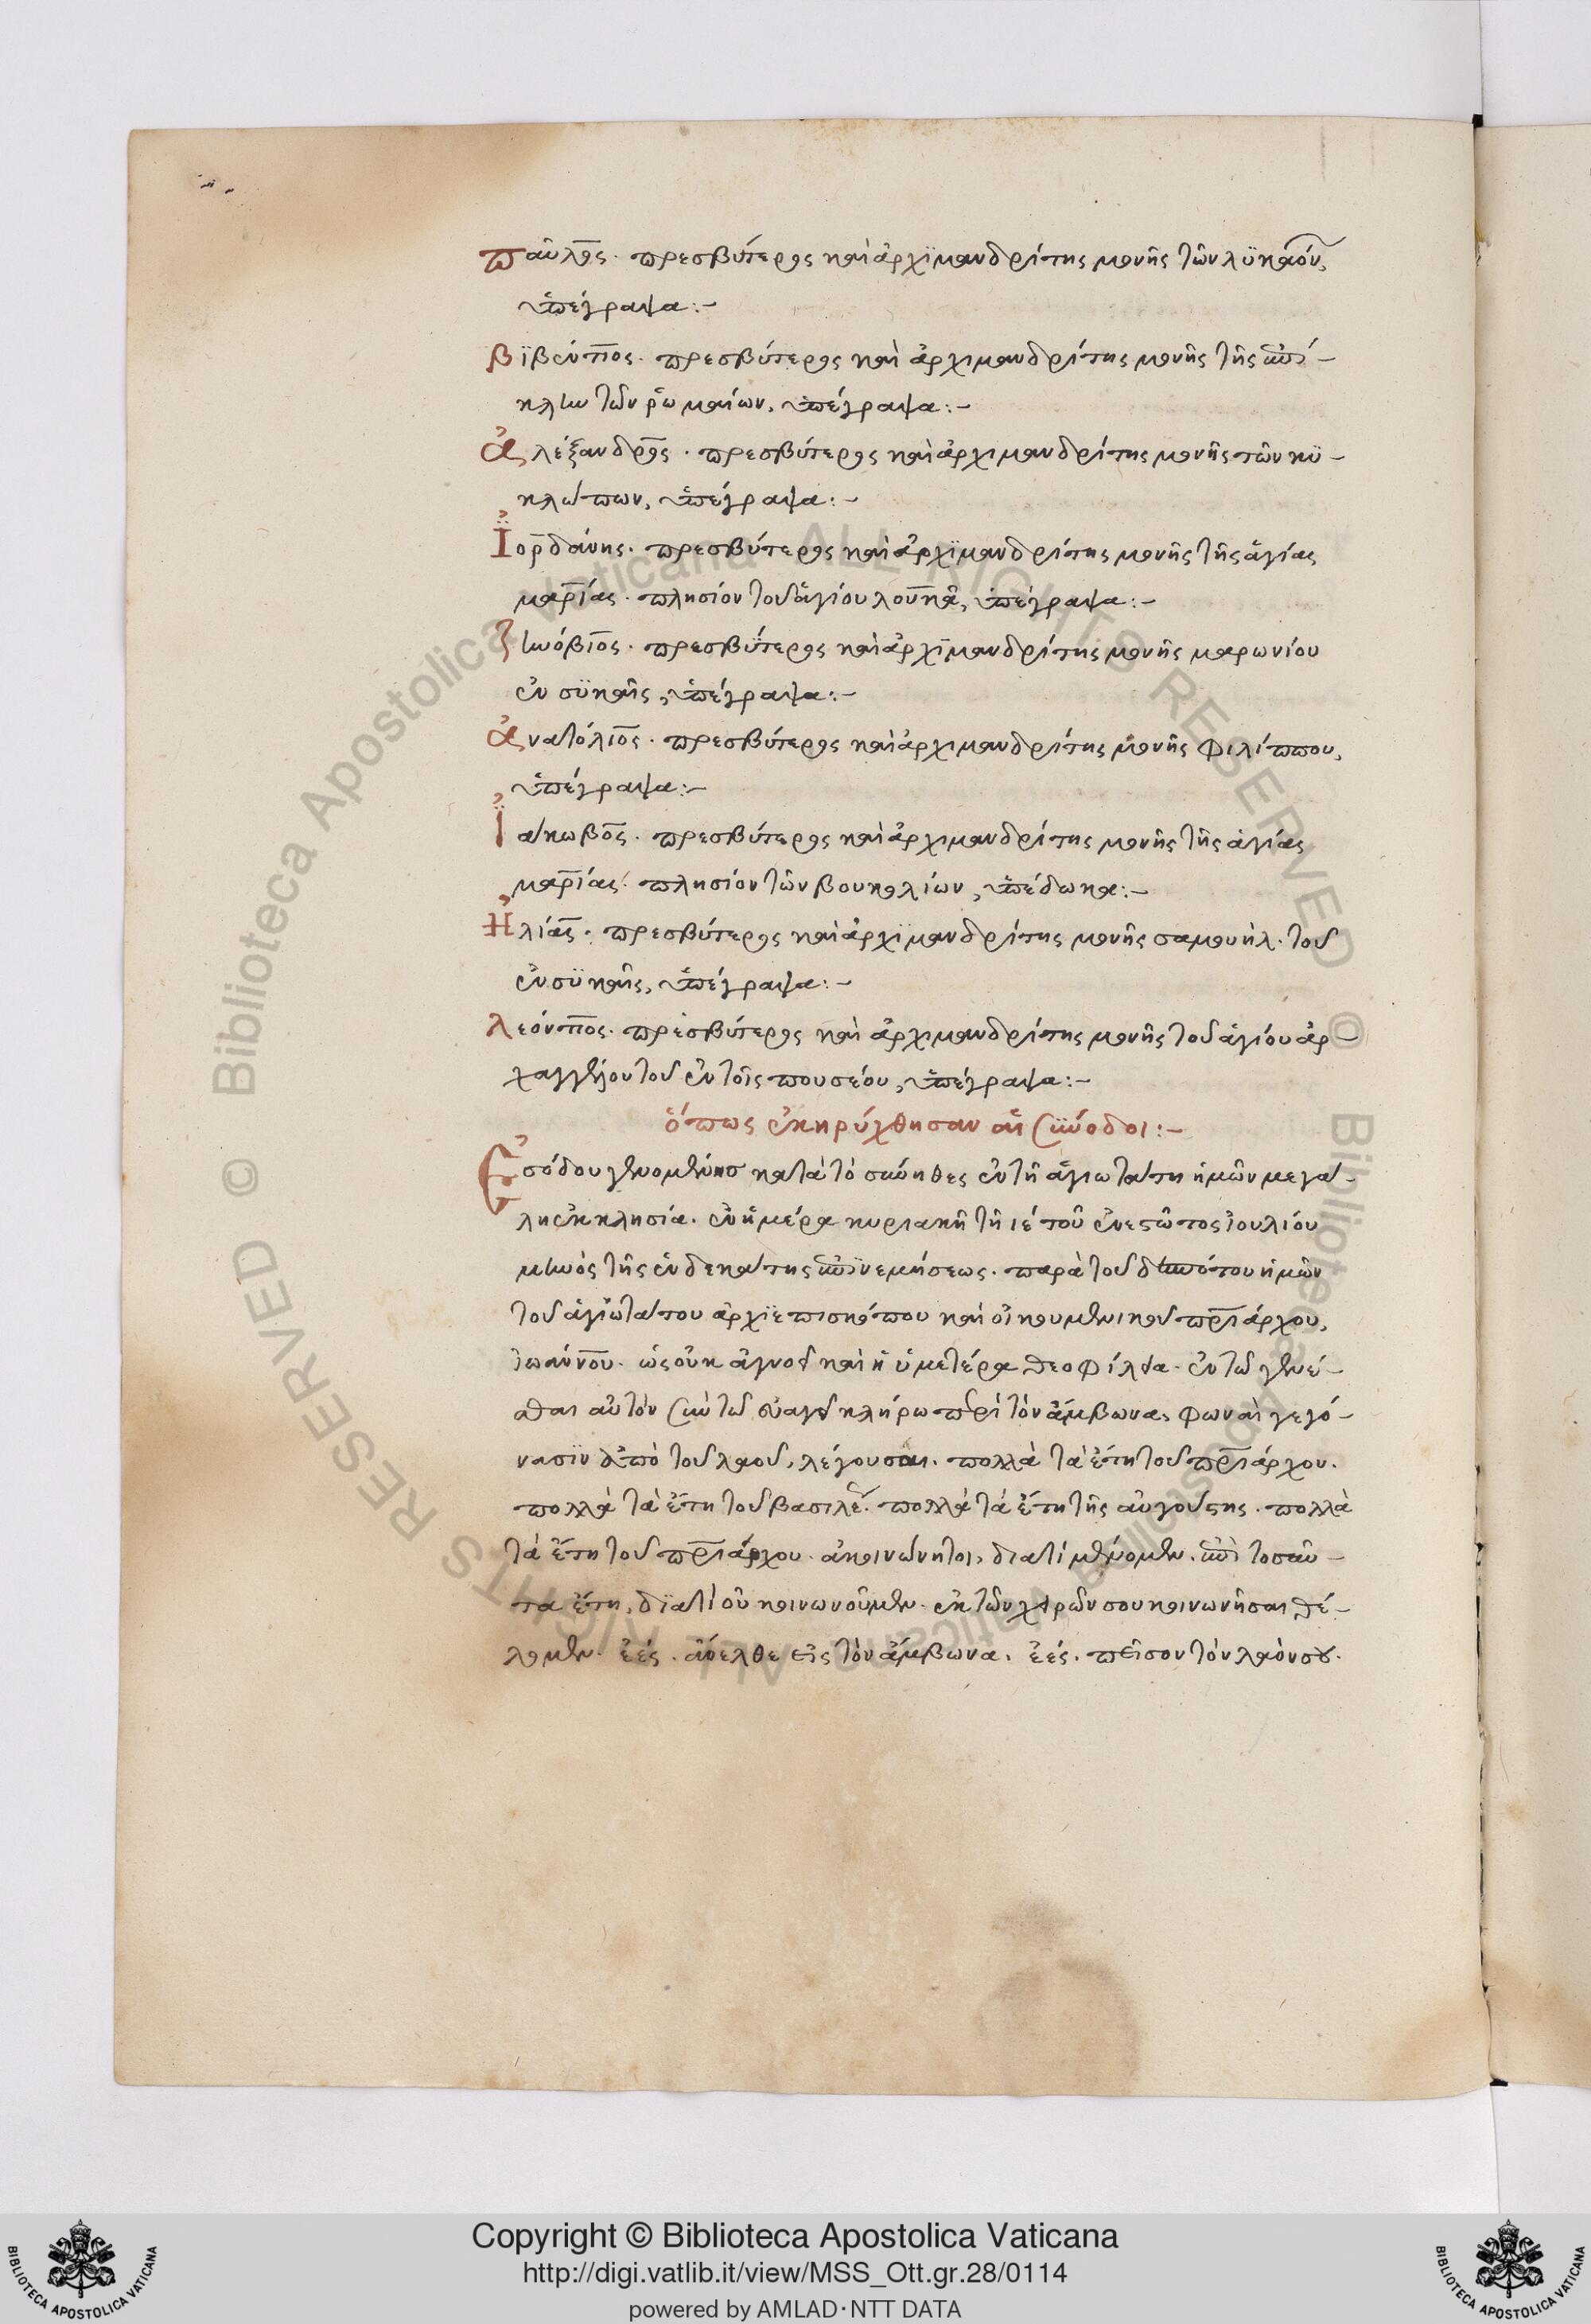 παῦλος· πρεσβύτερος καὶ ἀρχϊμανδρίτης μονῆς τῶν λϋκαόν,
ὑπέγραψα:–
βϊβέντιος· πρεσβύτερος καὶ ἀρχιμανδρίτης μονῆς τῆς ἐπί–
κλην τῶν ῥωμαίων, ὑπέγραψα:–
ἀλέξανδρος· πρεσβύτερος καὶ ἀρχιμανδρίτης μονῆς τῶν κϋ–
κλώπων, ὑπέγραψα:–
Ἰορδάνης· πρεσβύτερος καὶ ἀρχϊμανδρίτης μονῆς τῆς ἁγίας
μαρίας· πλησίον τοῦ ἁγίου λουκᾶ, ὑπέγραψα:–
ζηνόβιος· πρεσβύτερος καὶ ἀρχϊμανδρίτης μονῆς μαρωνίου
ἐν σϋκαῖς, ὑπέγραψα:–
ἀνατόλιος· πρεσβύτερος καὶ ἀρχιμανδρίτης μονῆς φιλίππου,
ὑπέγραψα:–
Ἰάκωβος· πρεσβύτερος καὶ ἀρχιμανδρίτης μονῆς τῆς ἁγίας
μαρίας· πλησίον τῶν βουκολίων, ὑπέδωκα:–
Ἠλίας· πρεσβύτερος καὶ ἀρχϊμανδρίτης μονῆς σαμουήλ· τοῦ
ἐν σϋκαῖς, ὑπέγραψα:–
λεόντιος· πρεσβύτερος καὶ ἀρχιμανδρίτης μονῆς τοῦ ἁγίου ἀρ–
χαγγέλου τοῦ ἐν τοῖς πουσέου, ὑπέγραψα:–
ὅπως ἐκηρύχθησαν αἱ σύνοδοι:–
Ἐσόδου γενομένης κατὰ τὸ σύνηθες ἐν τῇ ἁγιωτάτη ἡμῶν μεγά–
λη ἐκκλησία· ἐν ἡμέρα κυριακῇ τῇ ιέ τοῦ ἐνεστῶτος ἰουλίου
μηνὸς τῆς ἑνδεκάτης ἐπϊνεμήσεως· παρὰ τοῦ δεσπότου ἡμῶν
τοῦ ἁγϊωτάτου ἀρχϊεπισκόπου καὶ οἰκουμενικοῦ πριάρχου,
ἰωάννου· ὡς οὐκ ἀγνοεῖ καὶ ἡ ὑμετέρα θεοφίλεια· ἐν τῷ γενέ–
σθαι αὐτὸν σὺν τῷ εὐαγεῖ κλήρω περὶ τὸν ἄμβωνα, φωναὶ γεγό–
νασϊν ἀπὸ τοῦ λαοῦ, λέγουσαι· πολλὰ τὰ ἔτη τοῦ πριάρχου·
πολλὰ τὰ ἔτη τοῦ βασιλέ· πολλὰ τὰ ἔτη τῆς αὐγούστης· πολλὰ
τὰ ἔτη τοῦ πριάρχου· ἀκοινώνητοι, διατί μένομεν· ἐπὶ τοσαῦ–
τα ἔτη, δϊατί οὐ κοινωνοῦμεν· ἐκ τῶν χειρῶν σου κοινωνῆσαι θέ–
λομεν· ἐές· ἄνελθε εἰς τὸν ἄμβωνα· ἐές· πεῖσον τὸν λαόν σου·
Copyright © Biblioteca Apostolica Vaticana
http://digi.vatlib.it/view/MSS_Ott.gr.28/0114
powered by AMLAD·NTT DATA